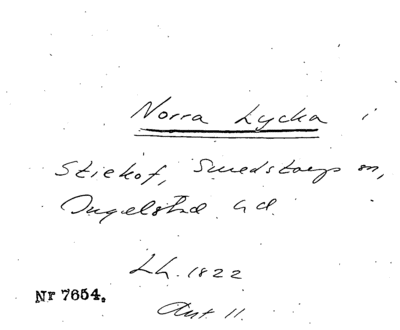 Norra Lycka i
Stiekof, Smedstorps sn,
Ingelstad hd.
Lh. 1822
Nr 7654.
Ant 11.